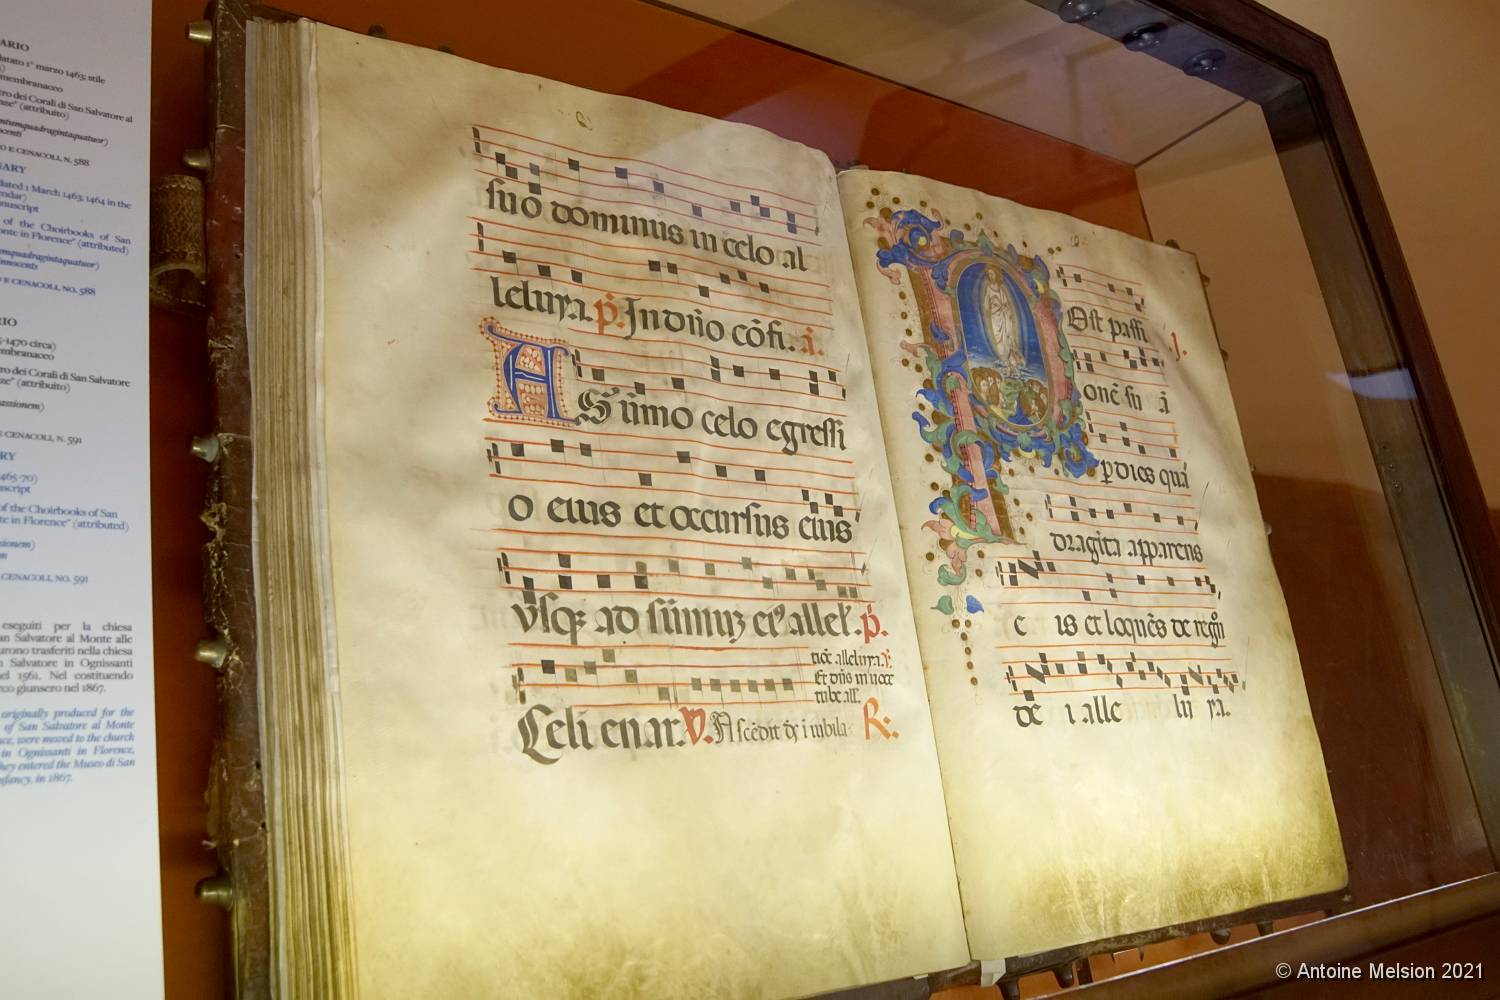 ARIO
datato 1° marzo 1463; stile
membranaceo
ro dei Corali di San Salvatore al
nze" (attribuito)
ntumquadragintaquatuor)
ocenti
O E CENACOLI, N. 588
ARY
dated 1 March 1463; 1464 in the
endar)
nuscript
of the Choirbooks of San
onte in Florence" (attributed)
umquadragintaquatuor)
nnocents
O E CENACOLI, NO. 588
RIO
5-1470 circa)
mbranaceo
ro dei Corali di San Salvatore
ze" (attribuito)
assionem)
E CENACOLI, N. 591
RY
465-70)
script
of the Choirbooks of San
te in Florence" (attributed)
ssionem)
CENACOLI, NO. 591
eseguiti per la chiesa
an Salvatore al Monte alle
urono trasferiti nella chiesa
n Salvatore in Ognissanti
el 1561. Nel costituendo
co giunsero nel 1867.
originally produced for the
of San Salvatore al Monte
nce, were moved to the church
in Ognissanti in Florence,
they entered the Museo di San
in 1867.
suo dominus in celo al
leluya. p̄. In dño cōfi. ā.
A S ūmo celo egressi
o eius et occursus eius
vsq ad sūmuz ei allel. p̄.
tiōe alleluya. V.
Et dñs in uoce
tube all.
Celi enar. V. Ascēdit dš i iubila R.
P Ost passi J.
onē su ā
p dies qua
dragita apparens
e is et loquēs de regn
de i alle lu ya.
© Antoine Melsion 2021